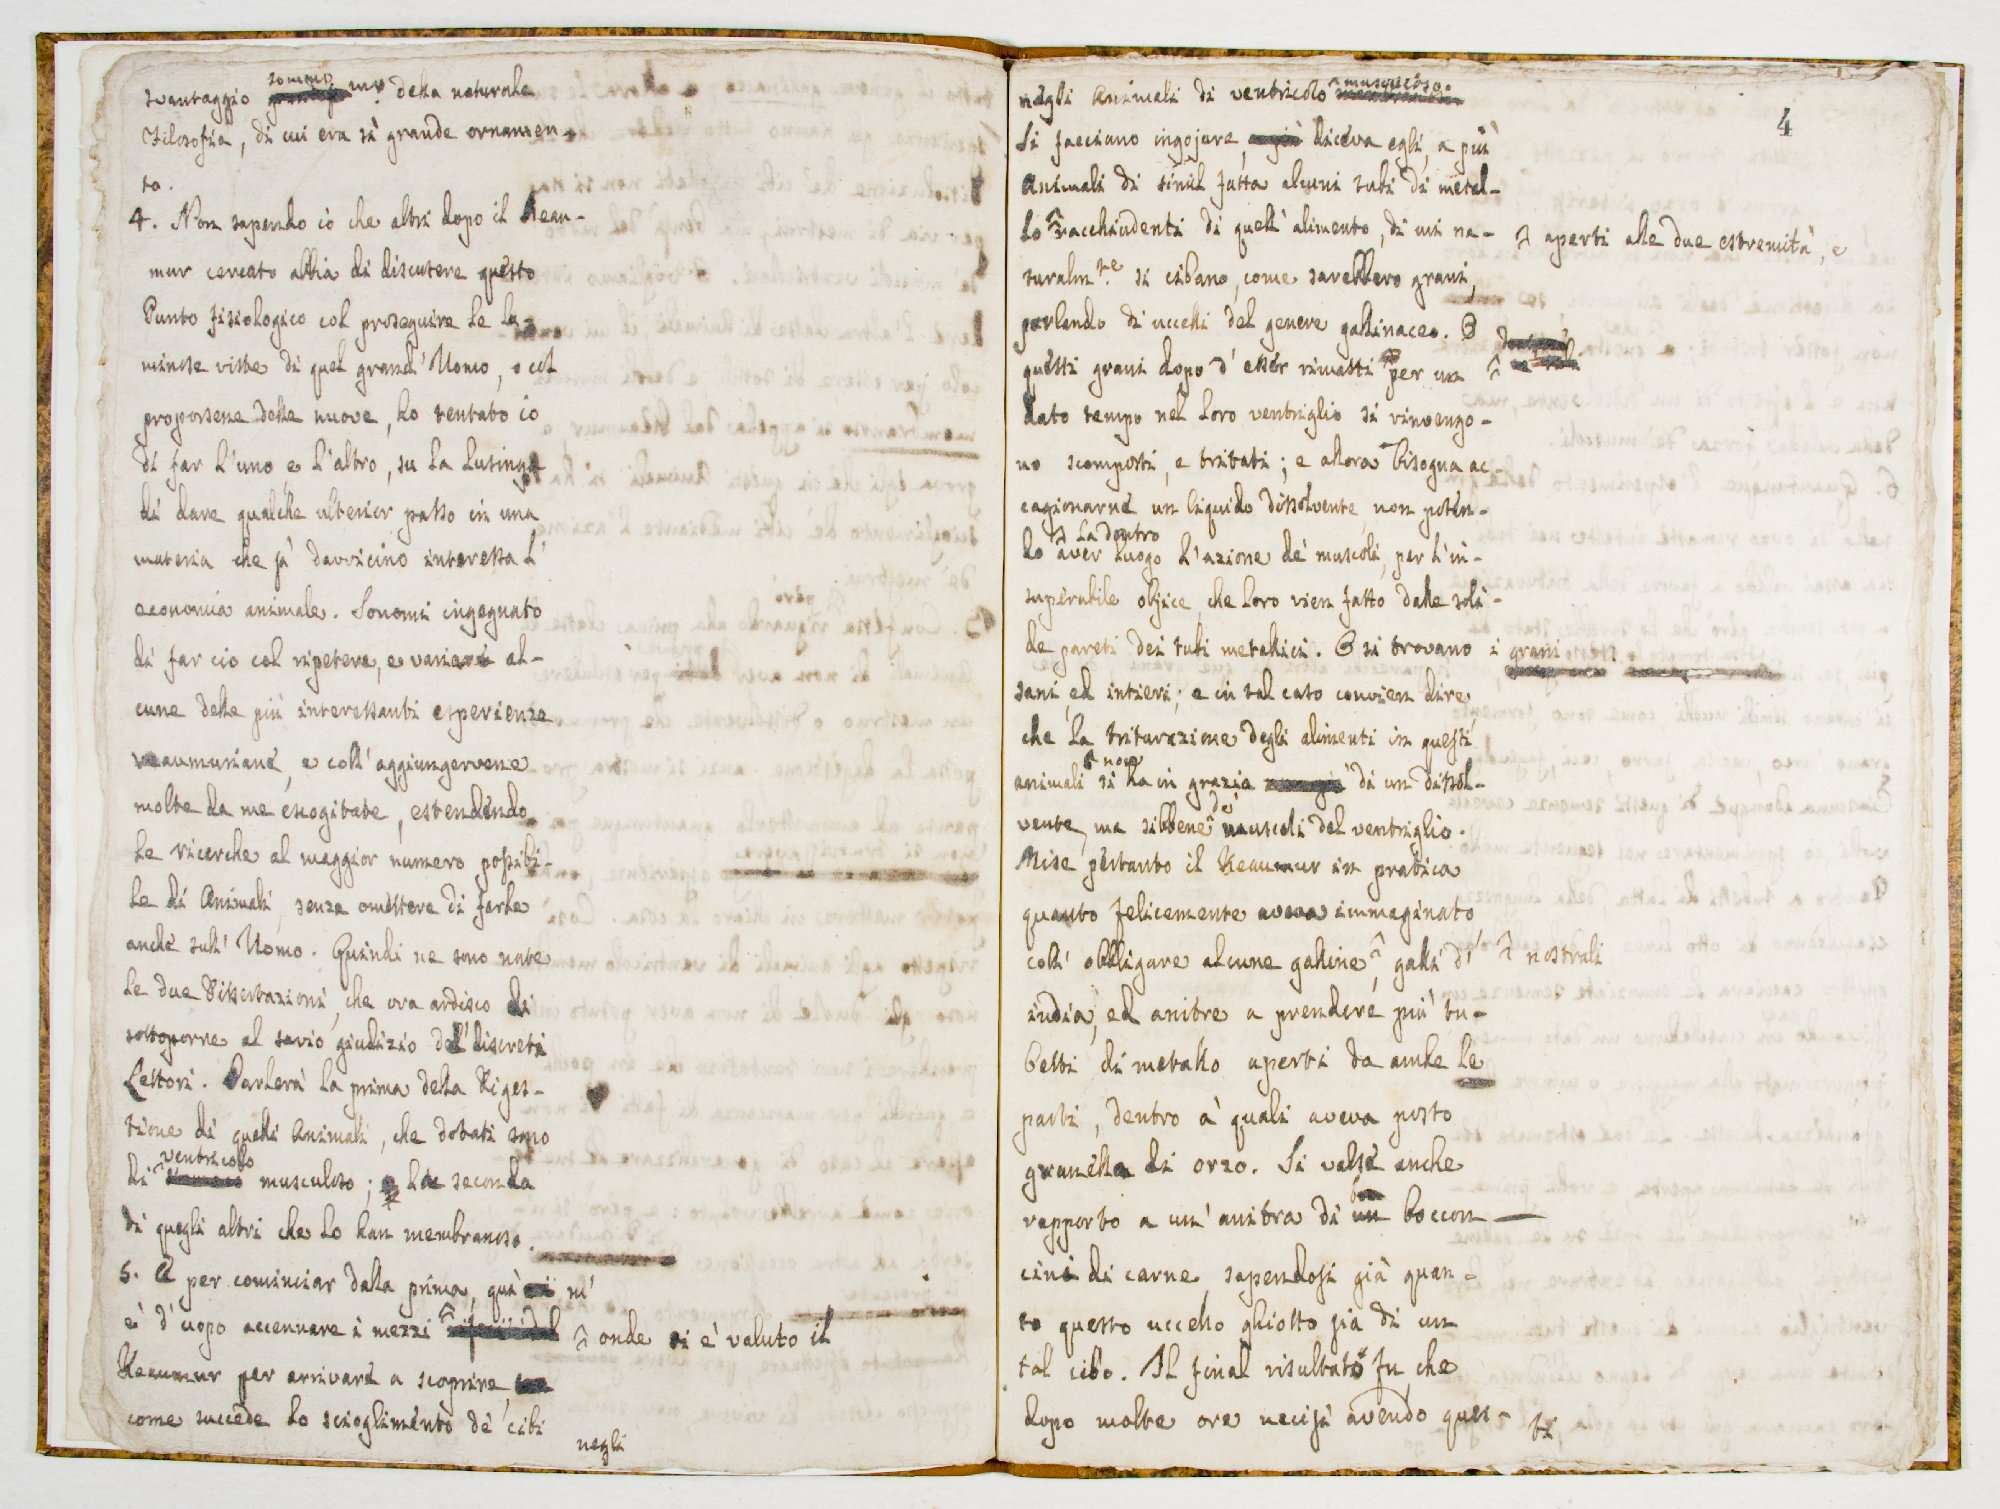 svantaggio sommo della naturale
Filosofia, di cui era sì grande ornamen-
to.
4. Non sapendo io che altri dopo il Reau-
mur cercato abbia di discutere questo
Punto fisiologico col proseguire le lu-
minose viste di quel grand' Uomo, o col
proporsene delle nuove, ho tentato io
di far l'uno, e l'altro, su la lusinga
di dare qualche ulterior passo in una
materia che sì davvicino interessa l'
economia animale. Sonomi ingegnato
di far ciò col ripetere, e variare al-
cune delle più interessanti esperienze
reaumuriane, e coll' aggiungervene
molte da me escogitate, estendendo
le ricerche al maggior numero possibi-
le di Animali, senza omettere di farle
anche sull' Uomo. Quindi ne sono nate
le due Dissertazioni, che ora ardisco di
sottoporre al savio giudizio de' discreti
Lettori. Parlerà la prima della Diges-
tione di quelli Animali, che dotati sono
di ventricolo musculoso; la seconda
di quegli altri che lo han membranoso.
5. E per cominciar dalla prima, quà m'
è d' uopo accennare i mezzi onde si è valuto il
Reaumur per arrivare a scoprire
come succede lo scioglimento de' cibi
negli
4
negli Animali di ventricolo muscoloso.
Si facciano ingojare, diceva egli, a più
Animali di simil fatta alcuni tubi di metal-
lo aperti alle due estremità, e racchiudenti di quell' alimento, di cui na-
turalm.te si cibano, come sarebbero grani,
parlando di uccelli del genere gallinaceo. O
questi grani dopo d' esser rimasti per un
dato tempo nel loro ventriglio si rinvengo-
no scomposti, e tritati; e allora bisogna ac-
cagionarne un liquido dissolvente, non poten-
do là dentro aver luogo l'azione de' muscoli, per l'in-
superabile obice, che loro vien fatto dalle soli-
de pareti dei tubi metallici. O si trovano i grani
sani, ed intieri; e in tal caso convien dire,
che la triturazione degli alimenti in questi
animali non si ha in grazia di un dissol-
vente, ma sibbene de' muscoli del ventriglio.
Mise pertanto il Reaumur in pratica
quanto felicemente aveva immaginato
coll' obbligare alcune galline nostrali, galli d'
india, ed anitre a prendere più tu-
betti di metallo aperti da ambe le
parti, dentro a' quali aveva posto
granella di orzo. Si valse anche
rapporto a un' anitra di boccon-
cini di carne, sapendosi già quan-
to questo uccello ghiotto sia di un
tal cibo. Il final risultato fu, che
dopo molte ore uccisi avendo ques-
ti